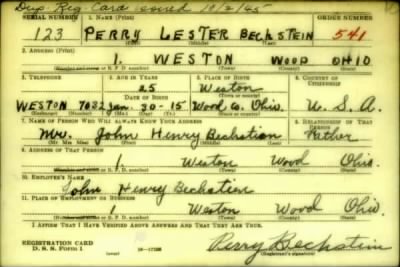 Dup. Reg. Card issued 10/2/45
SERIAL NUMBER 1. NAME (Print) ORDER NUMBER
123 PERRY LESTER BECHSTEIN 541
(First) (Middle) (Last)
2. ADDRESS (Print)
1. WESTON WOOD OHIO
(Number and street or R. F. D. number) (Town) (County) (State)
3. TELEPHONE 4. AGE IN YEARS 5. PLACE OF BIRTH 6. COUNTRY OF CITIZENSHIP
25 Weston
DATE OF BIRTH (Town or county)
WESTON 7032 Jan. 30-15 Wood Co. Ohio. U. S. A.
(Exchange) (Number) (Mo.) (Day) (Yr.) (State or country)
7. NAME OF PERSON WHO WILL ALWAYS KNOW YOUR ADDRESS 8. RELATIONSHIP OF THAT PERSON
Mr. John Henry Bechstien Father
(Mr. Mrs. Miss) (First) (Middle) (Last)
9. ADDRESS OF THAT PERSON
1 Weston Wood Ohio.
(Number and street or R. F. D. number) (Town) (County) (State)
10. EMPLOYER'S NAME
John Henry Bechstien
11. PLACE OF EMPLOYMENT OR BUSINESS
1 Weston Wood Ohio.
(Number and street or R. F. D. number) (Town) (County) (State)
I AFFIRM THAT I HAVE VERIFIED ABOVE ANSWERS AND THAT THEY ARE TRUE.
REGISTRATION CARD
D. S. S. FORM 1
Perry Bechstein
(Registrant's signature)